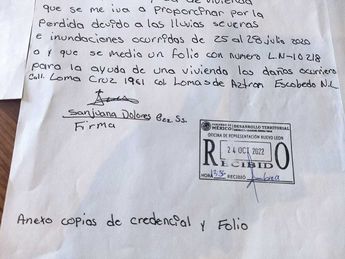 que se me iva a Proporcinar por la
Perdida devido a las lluvias severas
e inundaciones ocurridas de 25 al 28 julio 2020
a y que se medio un Folio con numero L.N-10218
para la ayuda de una vivienda los daños ocurriero
Call. Loma Cruz 1961 col Lomas de Aztlan Escobedo N.L
Sanjuana Dolores
Firma
MÉXICO DESARROLLO TERRITORIAL
OFICINA DE REPRESENTACIÓN NUEVO LEÓN
24 OCT 2022
RECIBIDO
HORA 13:50 RECIBIÓ Andrea
Anexo copias de credencial y Folio